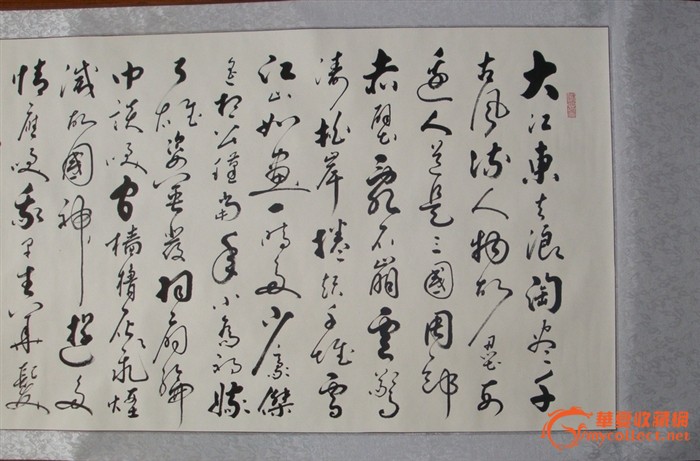 大江東去浪淘盡千
古風流人物故壘西
邊人道是三國周郎
赤壁亂石崩雲驚
濤拍岸捲起千堆雪
江山如畫一時多少豪傑
遙想公瑾當年小喬初嫁
了雄姿英發羽扇綸
巾談笑間檣櫓灰飛煙
滅故國神遊多
情應笑我早生華髮
華夏收藏網
mycollect.net